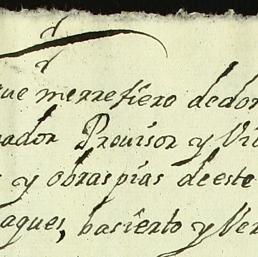 que merrefiero dedon
nador Provisor y Vic
s y obras pias de este
aques, hacierto y Ver